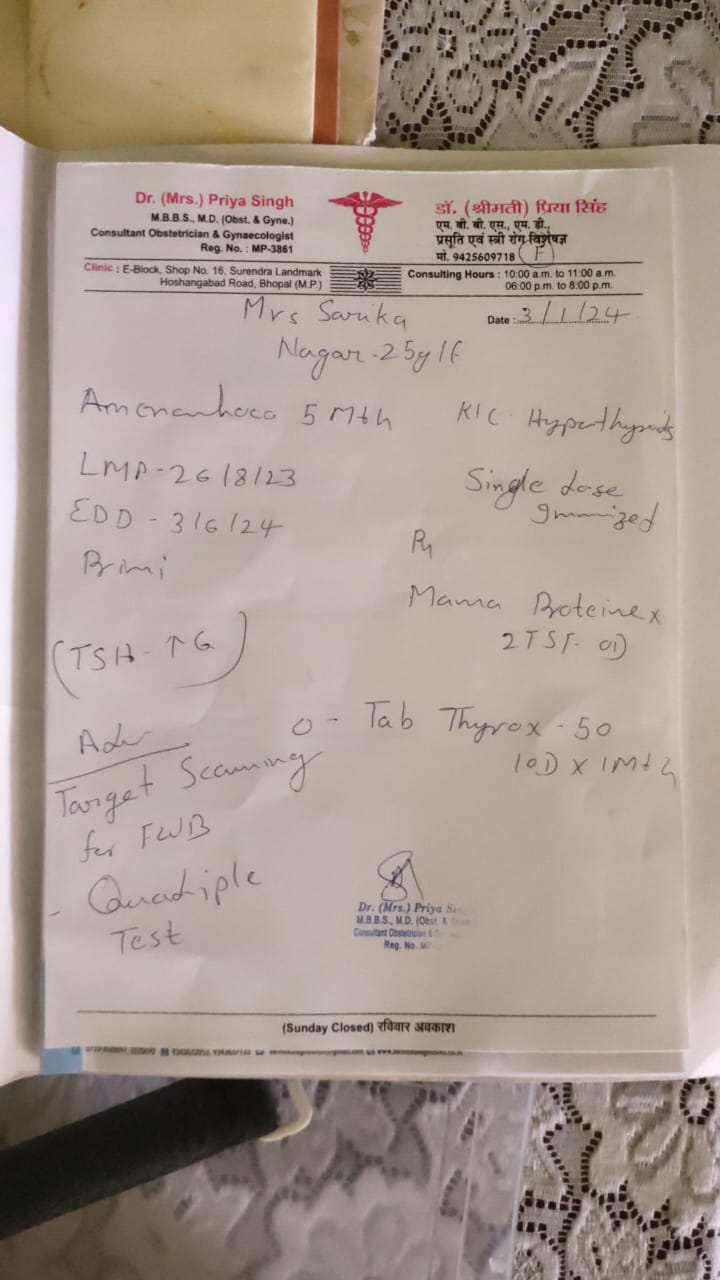 Dr. (Mrs.) Priya Singh
M.B.B.S., M.D. (Obst. & Gyne.)
Consultant Obstetrician & Gynaecologist
Reg. No. : MP-3861
डॉ. (श्रीमती) प्रिया सिंह
एम. बी. बी. एस., एम. डी.,
प्रसूति एवं स्त्री रोग विशेषज्ञ
मो. 9425609718 (F)
Clinic : E-Block, Shop No. 16, Surendra Landmark
Hoshangabad Road, Bhopal (M.P.)
Consulting Hours : 10:00 a.m. to 11:00 a.m.
06:00 p.m. to 8:00 p.m.
Mrs Sarika
Date : 3/1/24
Nagar - 25y/f
5 Mth
LMP - 26/8/23
EDD - 3/6/24
Primi
(TSH - ↑ 6.)
Adv
Target Scanning
for FWB
- Quadriple
Test
K/C Hyperthyroids
Single dose
Immunized
Rx
Mama Proteinex
2 TSF - OD
O - Tab Thyrox - 50
1 OD X 1 Mth
Dr. (Mrs.) Priya
M.B.B.S., M.D. (Obst. &
Consultant Obstetrician &
Reg. No.
(Sunday Closed) रविवार अवकाश